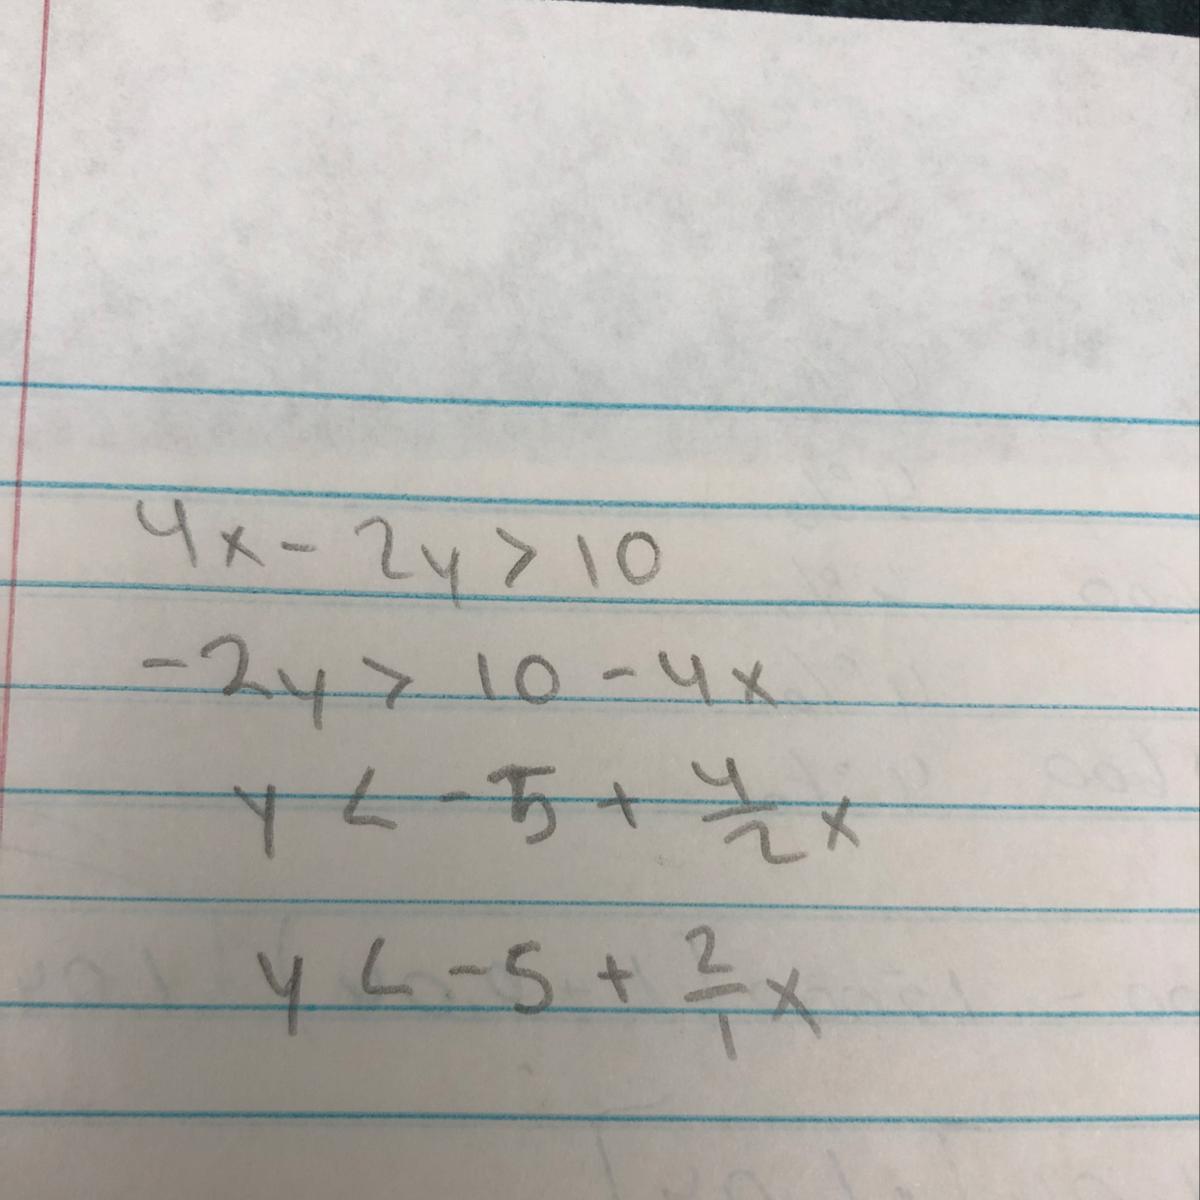 4x - 2y > 10
-2y > 10 - 4x
y < -5 + 4/2 x
y < -5 + 2/1 x